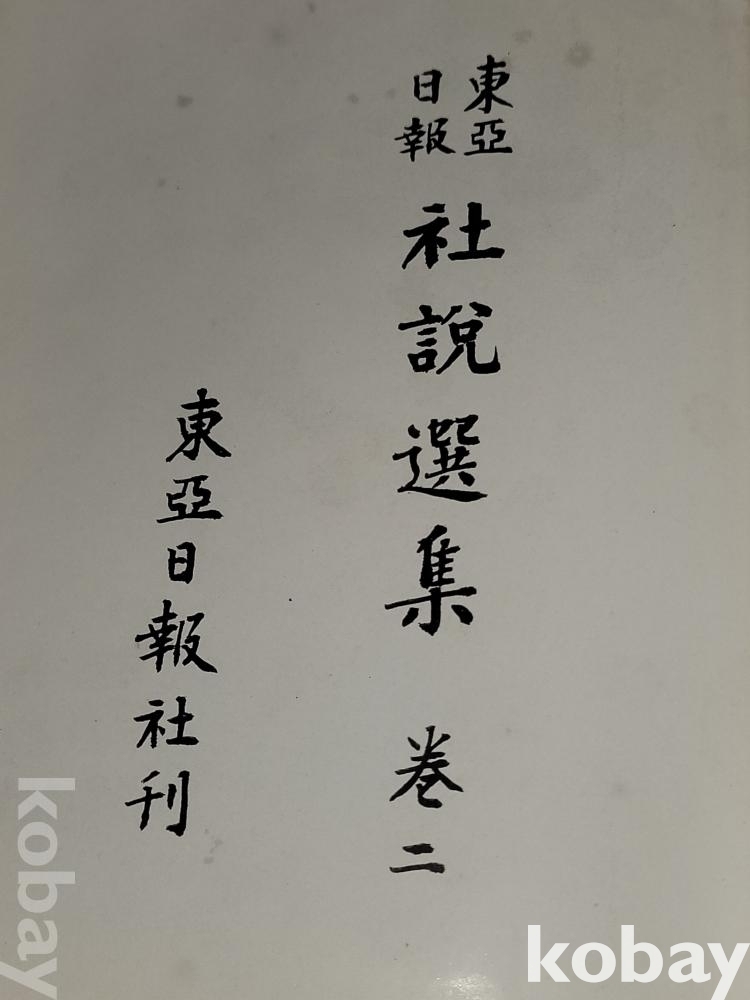 東亞
日報
社說選集 卷二
東亞日報社刊
kobay
kobay